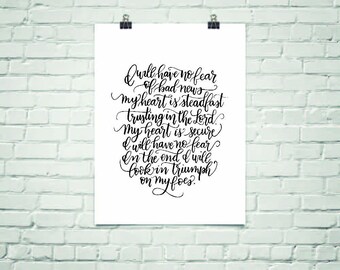 I will have no fear
of bad news
my heart is steadfast
trusting in the Lord
My heart is secure
I will have no fear
In the end I will
look in triumph
on my foes.